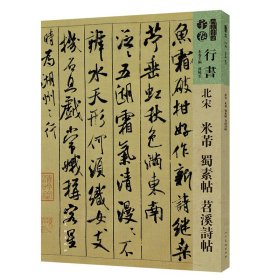 行書
北宋
米芾 蜀素帖 苕溪詩帖
魚霜破柑好作新詩繼桑
苧垂虹秋色滿東南
泛泛五湖霜氣清漫漫不辨
水天形何須織女支機
石且戲常娥稱客星
時為湖州之行